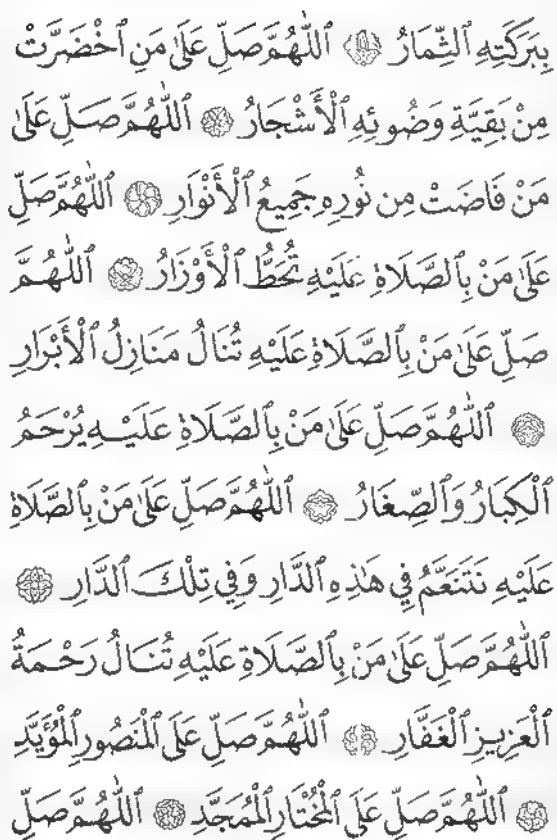 بِبَرَكَتِهِ ٱلثِّمَارُ ۞ ٱللَّهُمَّ صَلِّ عَلَىٰ مَنِ ٱخْضَرَّتْ
مِنْ بَقِيَّةِ وَضُوئِهِ ٱلْأَشْجَارُ ۞ ٱللَّهُمَّ صَلِّ عَلَىٰ
مَنْ فَاضَتْ مِن نُورِهِ جَمِيعُ ٱلْأَنْوَارِ ۞ ٱللَّهُمَّ صَلِّ
عَلَىٰ مَنْ بِٱلصَّلَاةِ عَلَيْهِ تُحَطُّ ٱلْأَوْزَارُ ۞ ٱللَّهُمَّ
صَلِّ عَلَىٰ مَنْ بِٱلصَّلَاةِ عَلَيْهِ تُنَالُ مَنَازِلُ ٱلْأَبْرَارِ
۞ ٱللَّهُمَّ صَلِّ عَلَىٰ مَنْ بِٱلصَّلَاةِ عَلَيْهِ يُرْحَمُ
ٱلْكِبَارُ وَٱلصِّغَارُ ۞ ٱللَّهُمَّ صَلِّ عَلَىٰ مَنْ بِٱلصَّلَاةِ
عَلَيْهِ نَتَنَعَّمُ فِي هَٰذِهِ ٱلدَّارِ وَفِي تِلْكَ ٱلدَّارِ ۞
ٱللَّهُمَّ صَلِّ عَلَىٰ مَنْ بِٱلصَّلَاةِ عَلَيْهِ تُنَالُ رَحْمَةُ
ٱلْعَزِيزِ ٱلْغَفَّارِ ۞ ٱللَّهُمَّ صَلِّ عَلَى ٱلْمَنْصُورِ ٱلْمُؤَيَّدِ
۞ ٱللَّهُمَّ صَلِّ عَلَى ٱلْمُخْتَارِ ٱلْمُمَجَّدِ ۞ ٱللَّهُمَّ صَلِّ